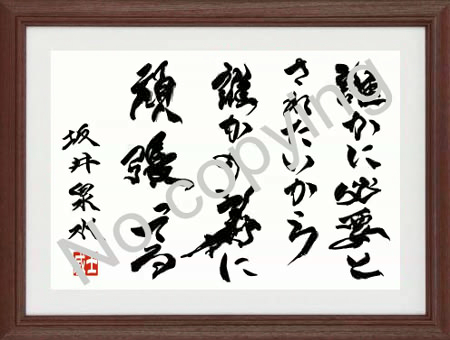 誰かに必要と
されたいから
誰かの為に
頑張ってる
坂井泉水
No copying